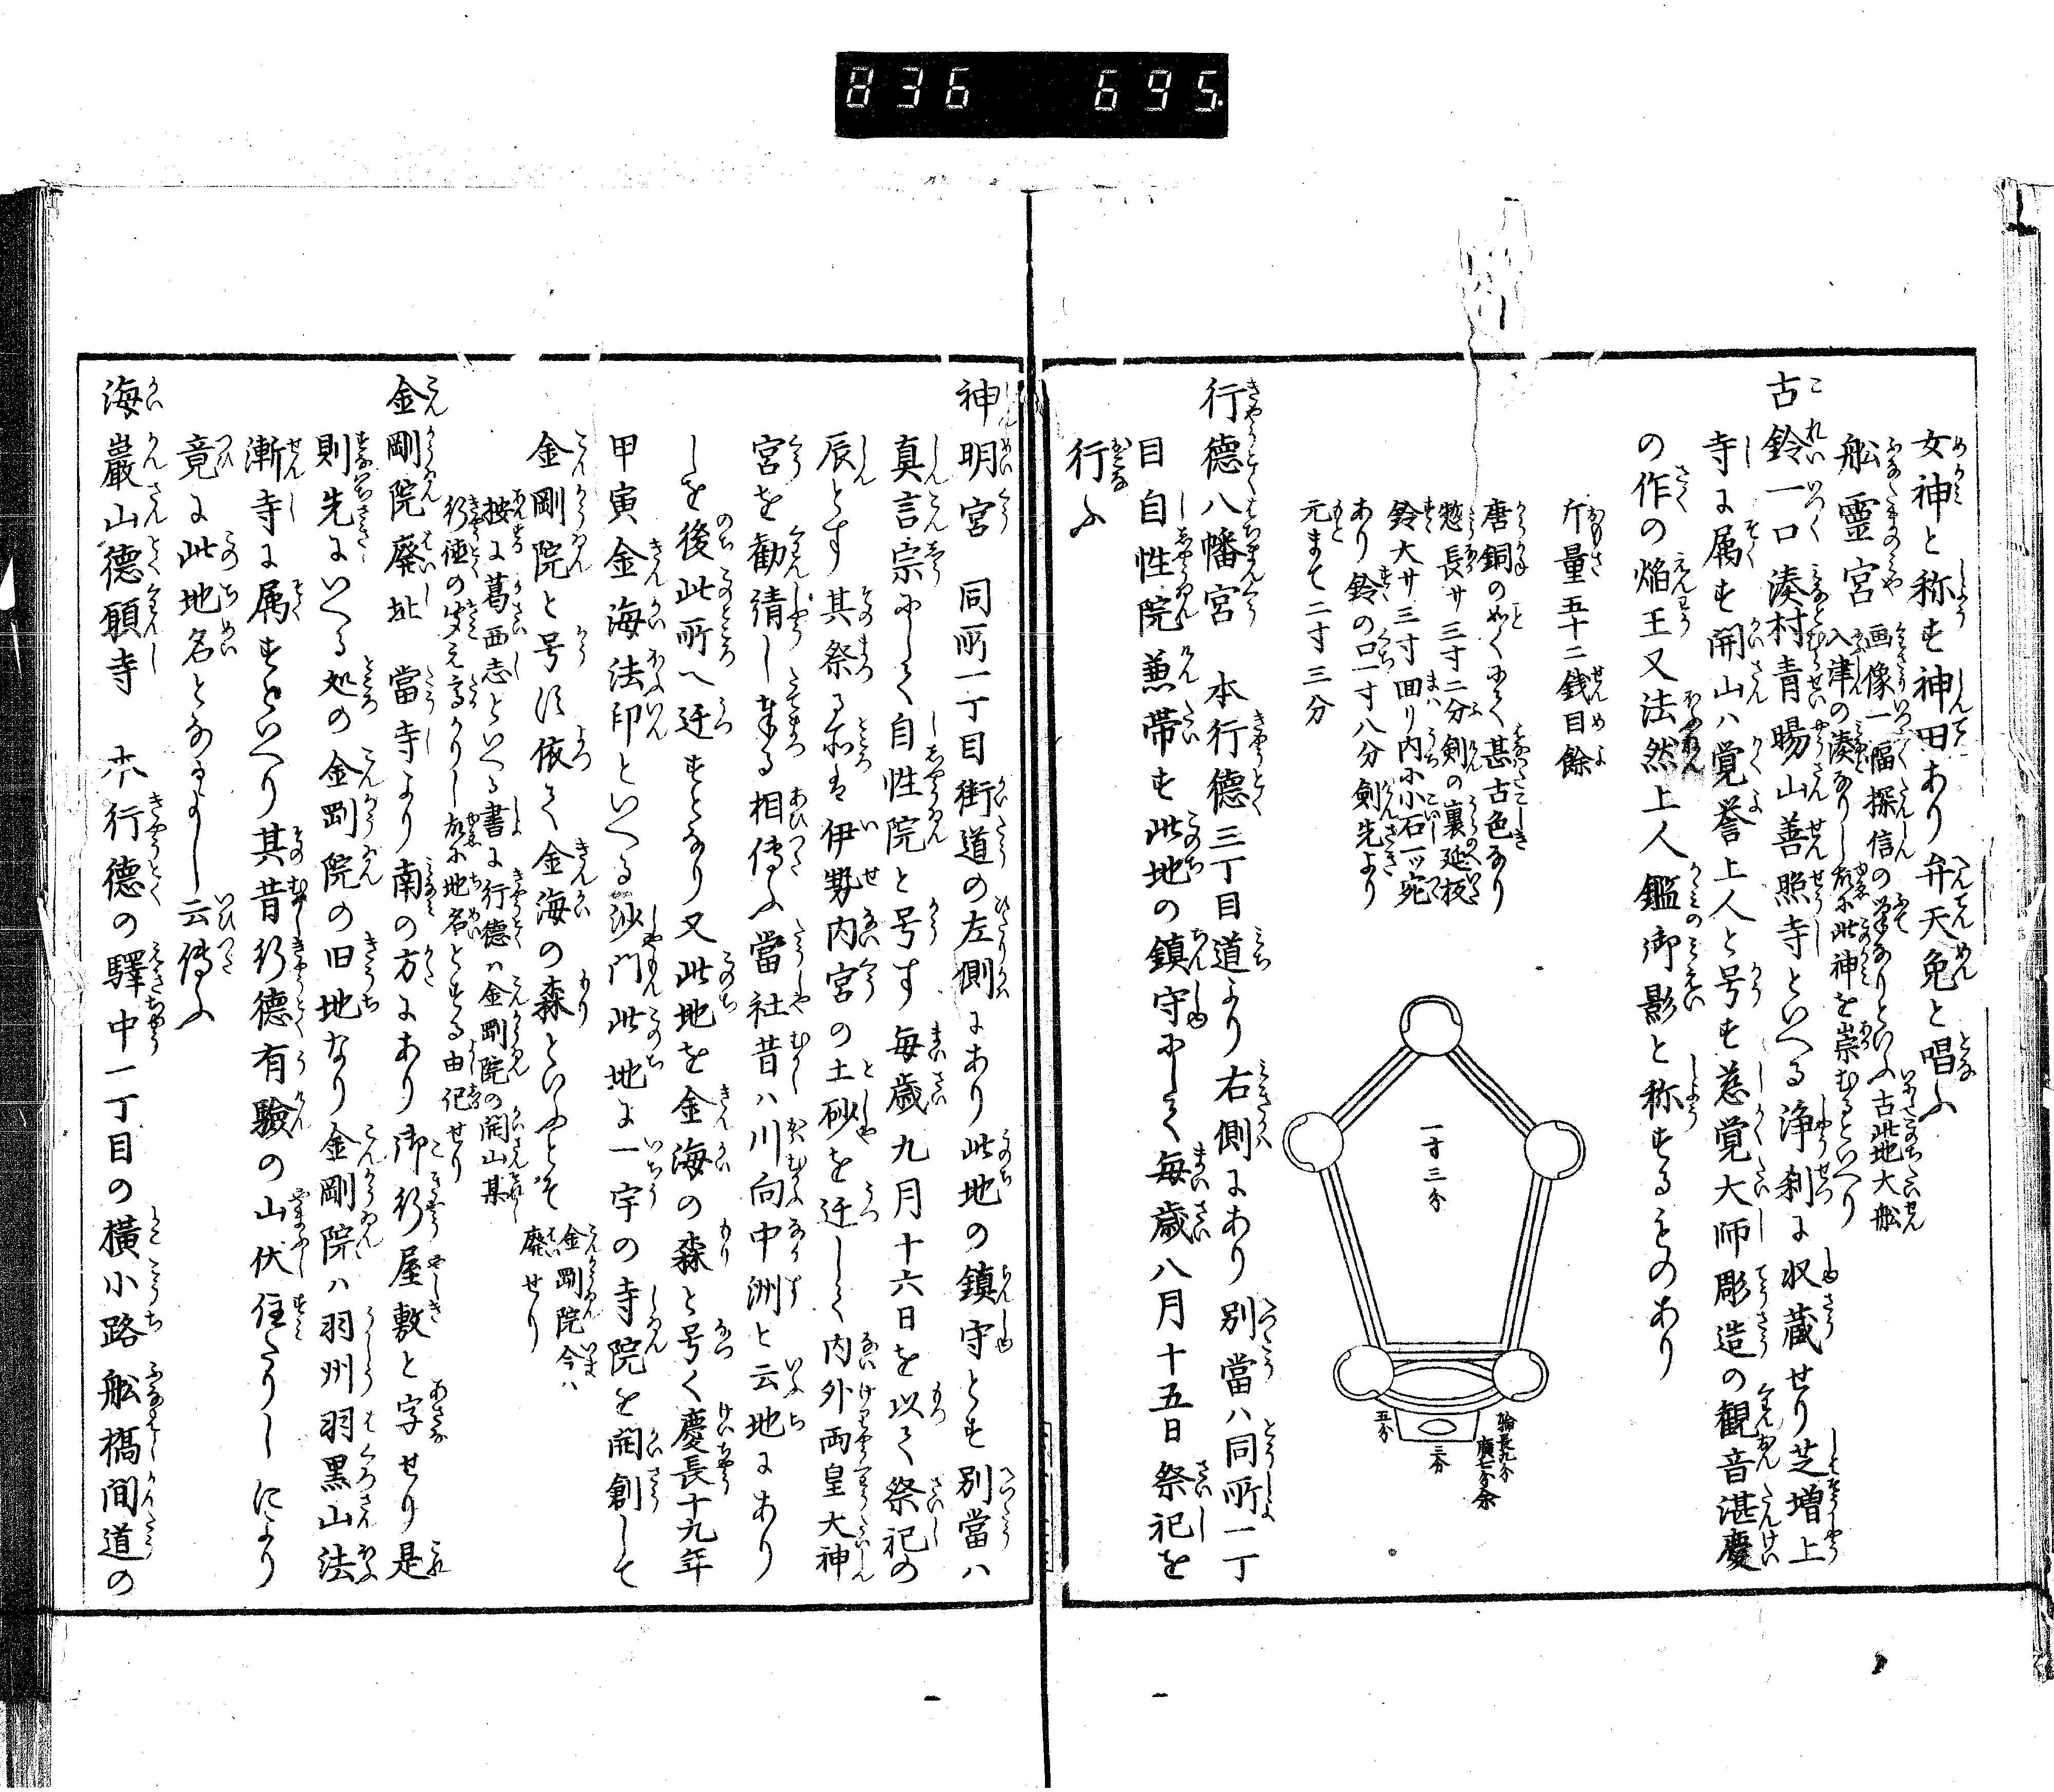 836 695.
女神と称す神田あり弁天免と唱ふ
船霊宮 画像一幅探信の筆なりといふ古此地大船
入津の湊なりし故に此神を崇むるといへり
古鈴一口 湊村青陽山善照寺といへる浄刹に収蔵せり芝増上
寺に属す開山ハ覚誉上人と号す慈覚大師彫造の観音湛慶
の作の焔王又法然上人鑑御影と称するものあり
斤量五十二銭目餘
唐銅の如くにて甚古色あり
惣長サ三寸二分剣の裏延板
鈴大サ三寸回り内に小石一ッ宛
あり鈴の口一寸八分剣先より
元まて二寸三分
一寸三分
輪長九分
廣七分余
三分
五分
行德八幡宮 本行德三丁目道より右側にあり別當ハ同所一丁
目自性院兼帯す此地の鎮守にして毎歳八月十五日祭祀を
行ふ
神明宮 同所一丁目街道の左側にあり此地の鎮守とす別當ハ
真言宗にして自性院と号す毎歳九月十六日を以て祭祀の
辰とす其祭る所は伊勢内宮の土砂を迁して内外両皇大神
宮を勧請し奉る相傳ふ當社昔ハ川向中洲と云地にあり
しを後此所へ迁すとなり又此地を金海の森と号く慶長十九年
甲寅金海法印といへる沙門此地に一宇の寺院を開創して
金剛院と号に依て金海の森といふとそ 金剛院今ハ
廢せり
按に葛西志といへる書に行德ハ金剛院の開山某
行德の聞え高かりし故に地名とせる由記せり
金剛院廢址 當寺より南の方にあり御行屋敷と字せり是
則先にいへる処の金剛院の旧地なり金剛院ハ羽州羽黒山法
漸寺に属すといへり其昔行德有驗の山伏住たりしにより
竟に此地名となるよし云傳ふ
海巖山德願寺 本行德の驛中一丁目の横小路船橋間道の